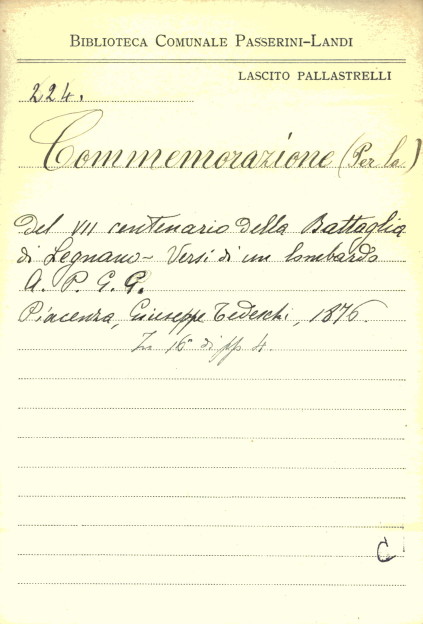 BIBLIOTECA COMUNALE PASSERINI-LANDI
LASCITO PALLASTRELLI
224.
Commemorazione (Per la)
del VII centenario della Battaglia
di Legnano - Versi di un lombardo
A. P. G. G.
Piacenza, Giuseppe Tedeschi, 1876.
In 16° di pp 4.
C